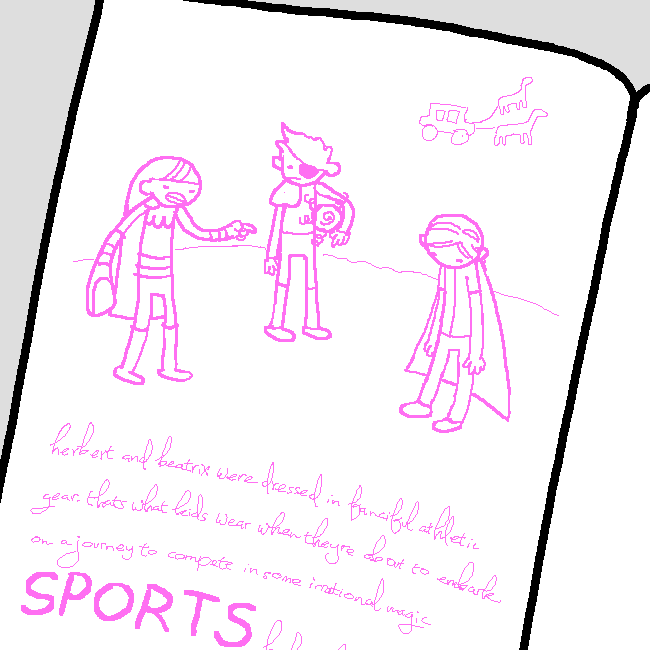 herbert and beatrix were dressed in fanciful athletic
gear. thats what kids wear when theyre about to embark
on a journey to compete in some irrational magic
SPORTS